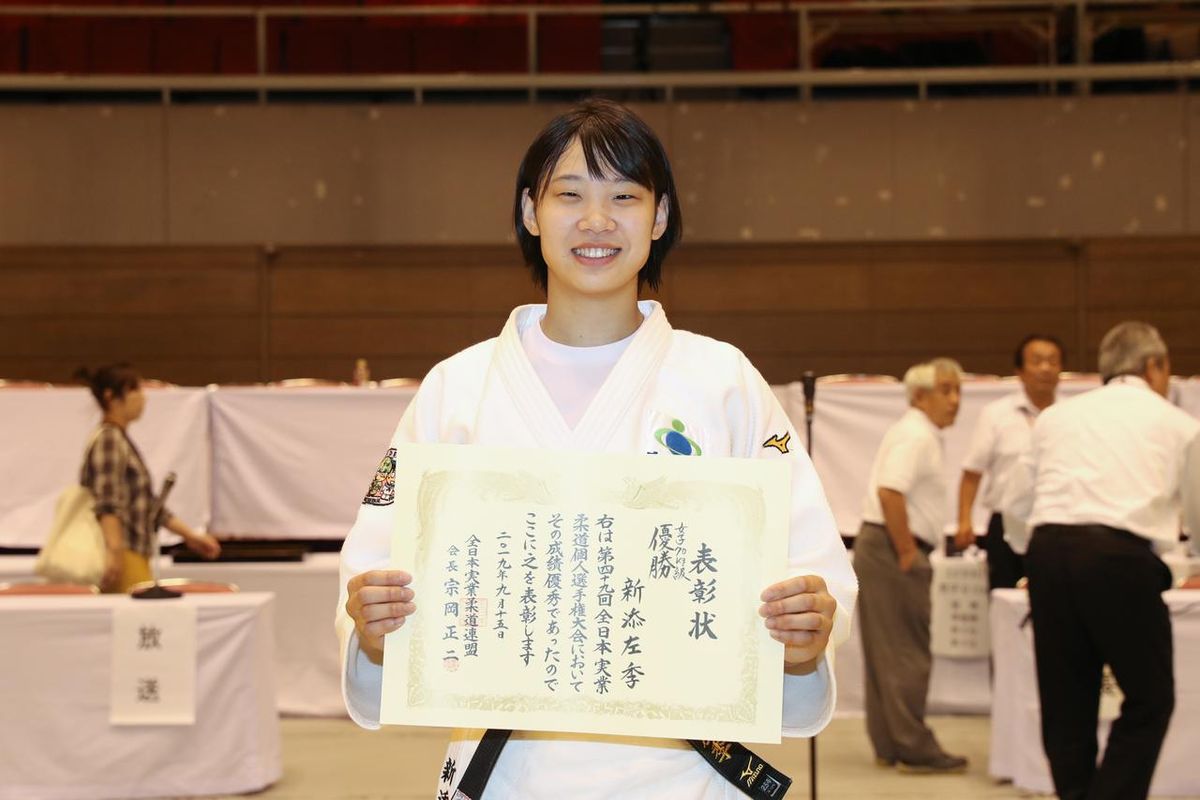 表彰状
女子70kg級
優勝
新添左季
右は第四十九回全日本実業
柔道個人選手権大会において
その成績優秀であったので
ここに之を表彰します
二〇一九年九月十五日
全日本実業柔道連盟
会長 宗岡正二
放送
新添
季
mizuno